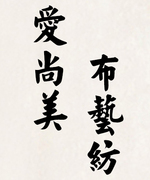 愛尚美
布藝紡